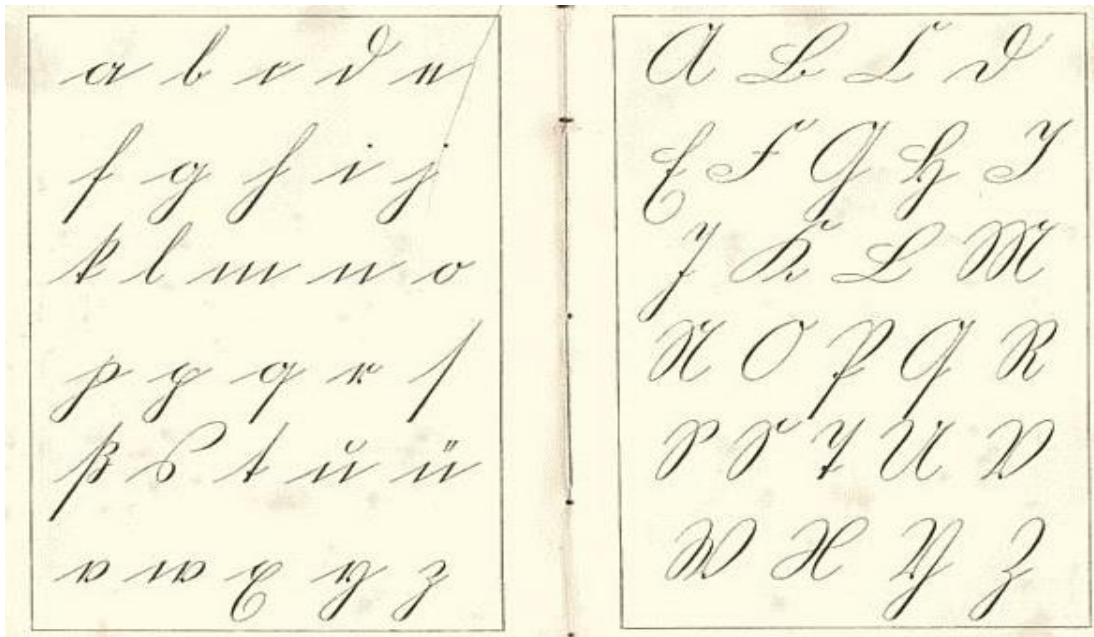 a b c d e
f g h i j
k l m n o
p p q r ſ
ß s t u ü
v w x y z
A B C D
E F G H I
J K L M
N O P Q R
S S T U V
W X Y Z